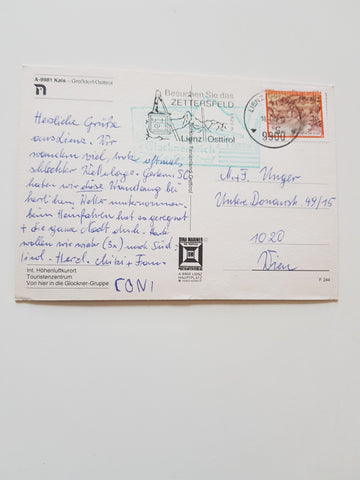 A-9981 Kals – Großdorf/Osttirol
Besuchen Sie das
ZETTERSFELD
Lienz Osttirol
LIENZ
9900
Herzliche Grüße
aus Lienz. Wir
wandern viel, trotz oftmals
schlechter Wetterlage. Gestern SO
haben wir diese Wanderung bei
herrlichem Wetter unternommen.
Beim Heimfahren hat es geregnet
+ die ganze Nacht durch. Heute
wollen wir wieder (3x) nach Süd-
tirol. Herzl. Mitzi + Franz
TONI
M. + F. Unger
Untere Donaustr. 49/15
1020
Wien
Int. Höhenluftkurort
Touristenzentrum
Von hier in die Glockner-Gruppe
A-9900 LIENZ
HAUPTPLATZ
F 244